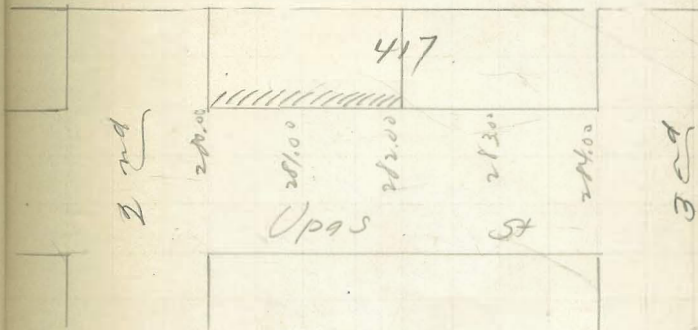 417
2 nd
280.00
281.00
282.00
283.00
284.00
3 rd
Upas St